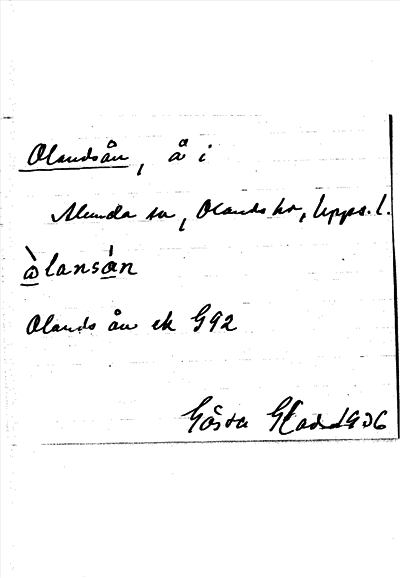 Olandsån, å i
Alunda sn, Olands hd, Upps. l.
ὰlansán
Olands ån ek G92
Gösta 1936